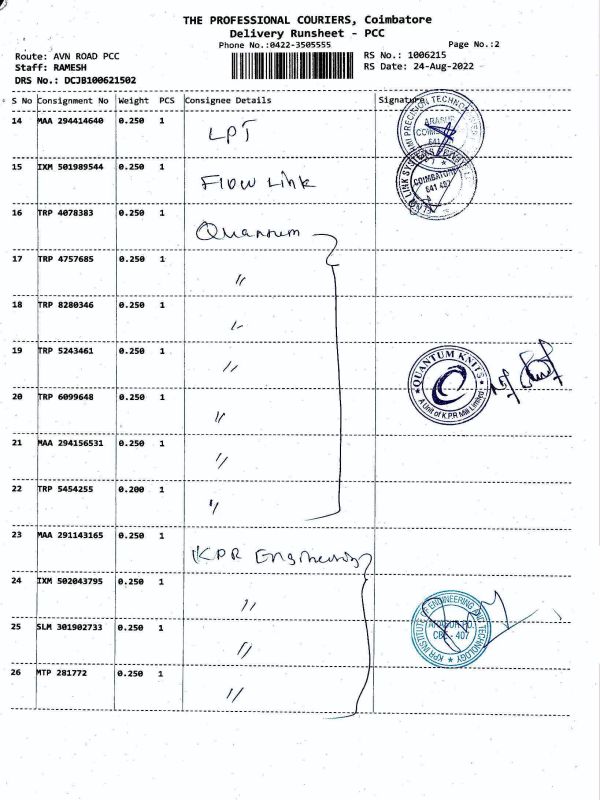 THE PROFESSIONAL COURIERS, Coimbatore
Delivery Runsheet - PCC
Phone No.:0422-3505555
Page No.:2
Route: AVN ROAD PCC
RS No.: 1006215
Staff: RAMESH
RS Date: 24-Aug-2022
DRS No.: DCJB100621502
S No Consignment No Weight PCS Consignee Details Signature
14 MAA 294414640 0.250 1 LPT
15 IXM 501989544 0.250 1 Flow Link
16 TRP 4078383 0.250 1 Quantum
17 TRP 4757685 0.250 1 "
18 TRP 8280346 0.250 1 "
19 TRP 5243461 0.250 1 "
QUANTUM KNITS
A Unit of K.P.R Mill Limited
20 TRP 6099648 0.250 1 "
21 MAA 294156531 0.250 1 "
22 TRP 5454255 0.200 1 "
23 MAA 291143165 0.250 1 KPR Engineering
24 IXM 502043795 0.250 1 "
KPR INSTITUTE OF ENGINEERING AND TECHNOLOGY
CBE - 407
25 SLM 301902733 0.250 1 "
26 MTP 281772 0.250 1 "